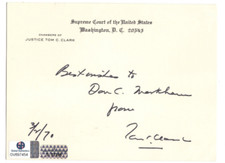 Supreme Court of the United States
Washington, D. C. 20543
CHAMBERS OF
JUSTICE TOM C. CLARK
Best wishes to
Don C. Markham
from
Tom C. Clark